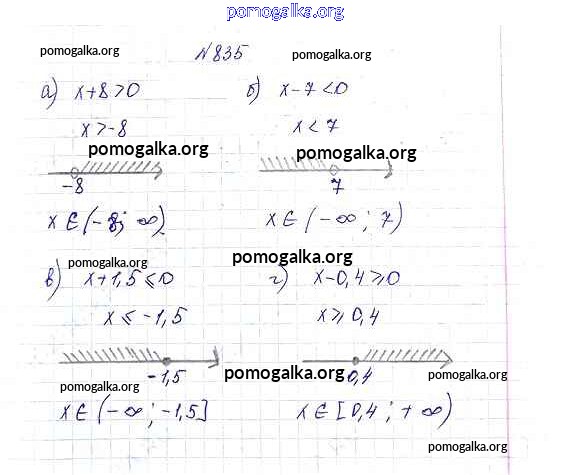 pomogalka.org
pomogalka.org №835 pomogalka.org
а) x+8>0 б) x-7<0
x>-8 x<7
pomogalka.org pomogalka.org
-8 7
x∈(-8; ∞) x∈(-∞; 7)
pomogalka.org pomogalka.org
в) x+1,5≤0 г) x-0,4≥0
x≤-1,5 x≥0,4
-1,5 pomogalka.org 0,4 pomogalka.org
pomogalka.org
x∈(-∞; -1,5] x∈[0,4; +∞)
pomogalka.org